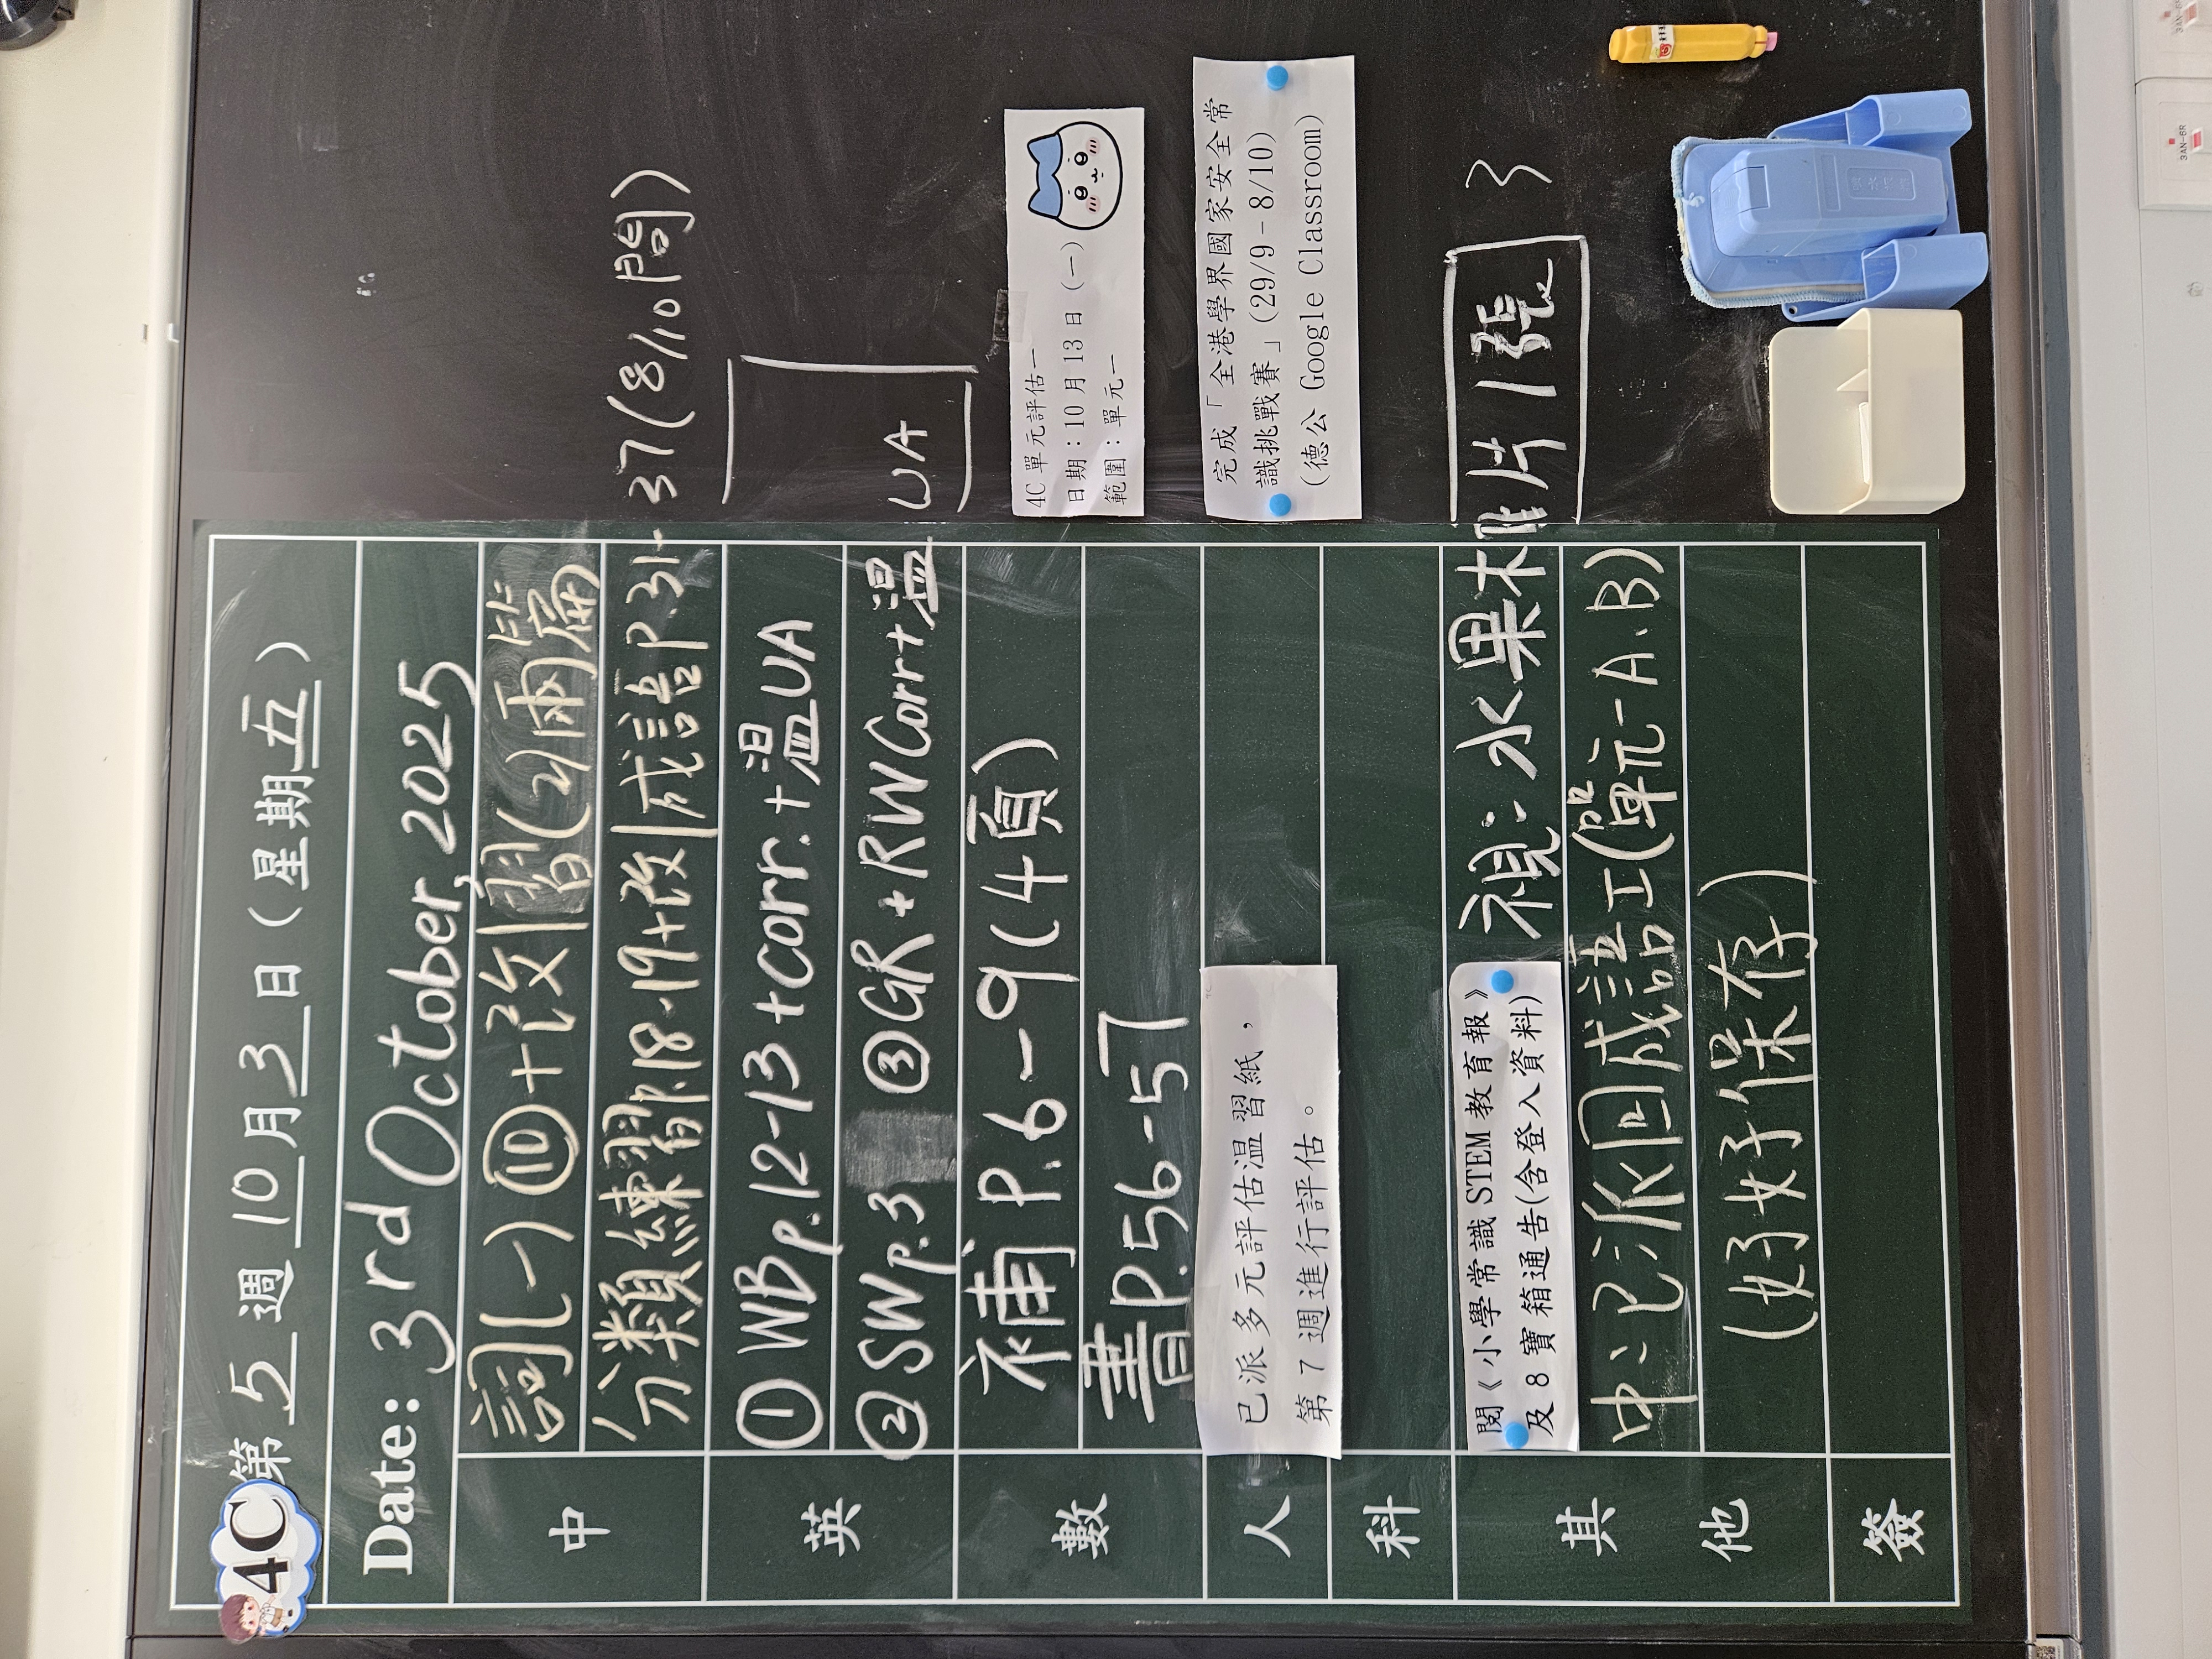 4C
第 5 週 10 月 3 日 ( 星期 五 )
Date: 3rd October, 2025
中
詞(一) ⑩ + 改 | 習(2) 兩篇
分類練習P.18-19+改 | 成語P.31-37(8/10問)
英
① WBp.12-13 + corr. + 温UA
② SWp.3 ③ GR + RWCorr + 温UA
數
補 P.6-9(4頁)
書P.56-57
4C 單元評估一
日期：10 月 13 日 (一)
範圍：單元一
人
已派多元評估温習紙，
第 7 週進行評估。
完成「全港學界國家安全常
識挑戰賽」(29/9 - 8/10)
(德公 Google Classroom)
科
其他
閱《小學常識 STEM 教育報》
及 8 寶箱通告(含登入資料)
視：水果相片1張 3
中：已派回成語工(單元一A、B)
(好好保存)
簽
3AN-6R